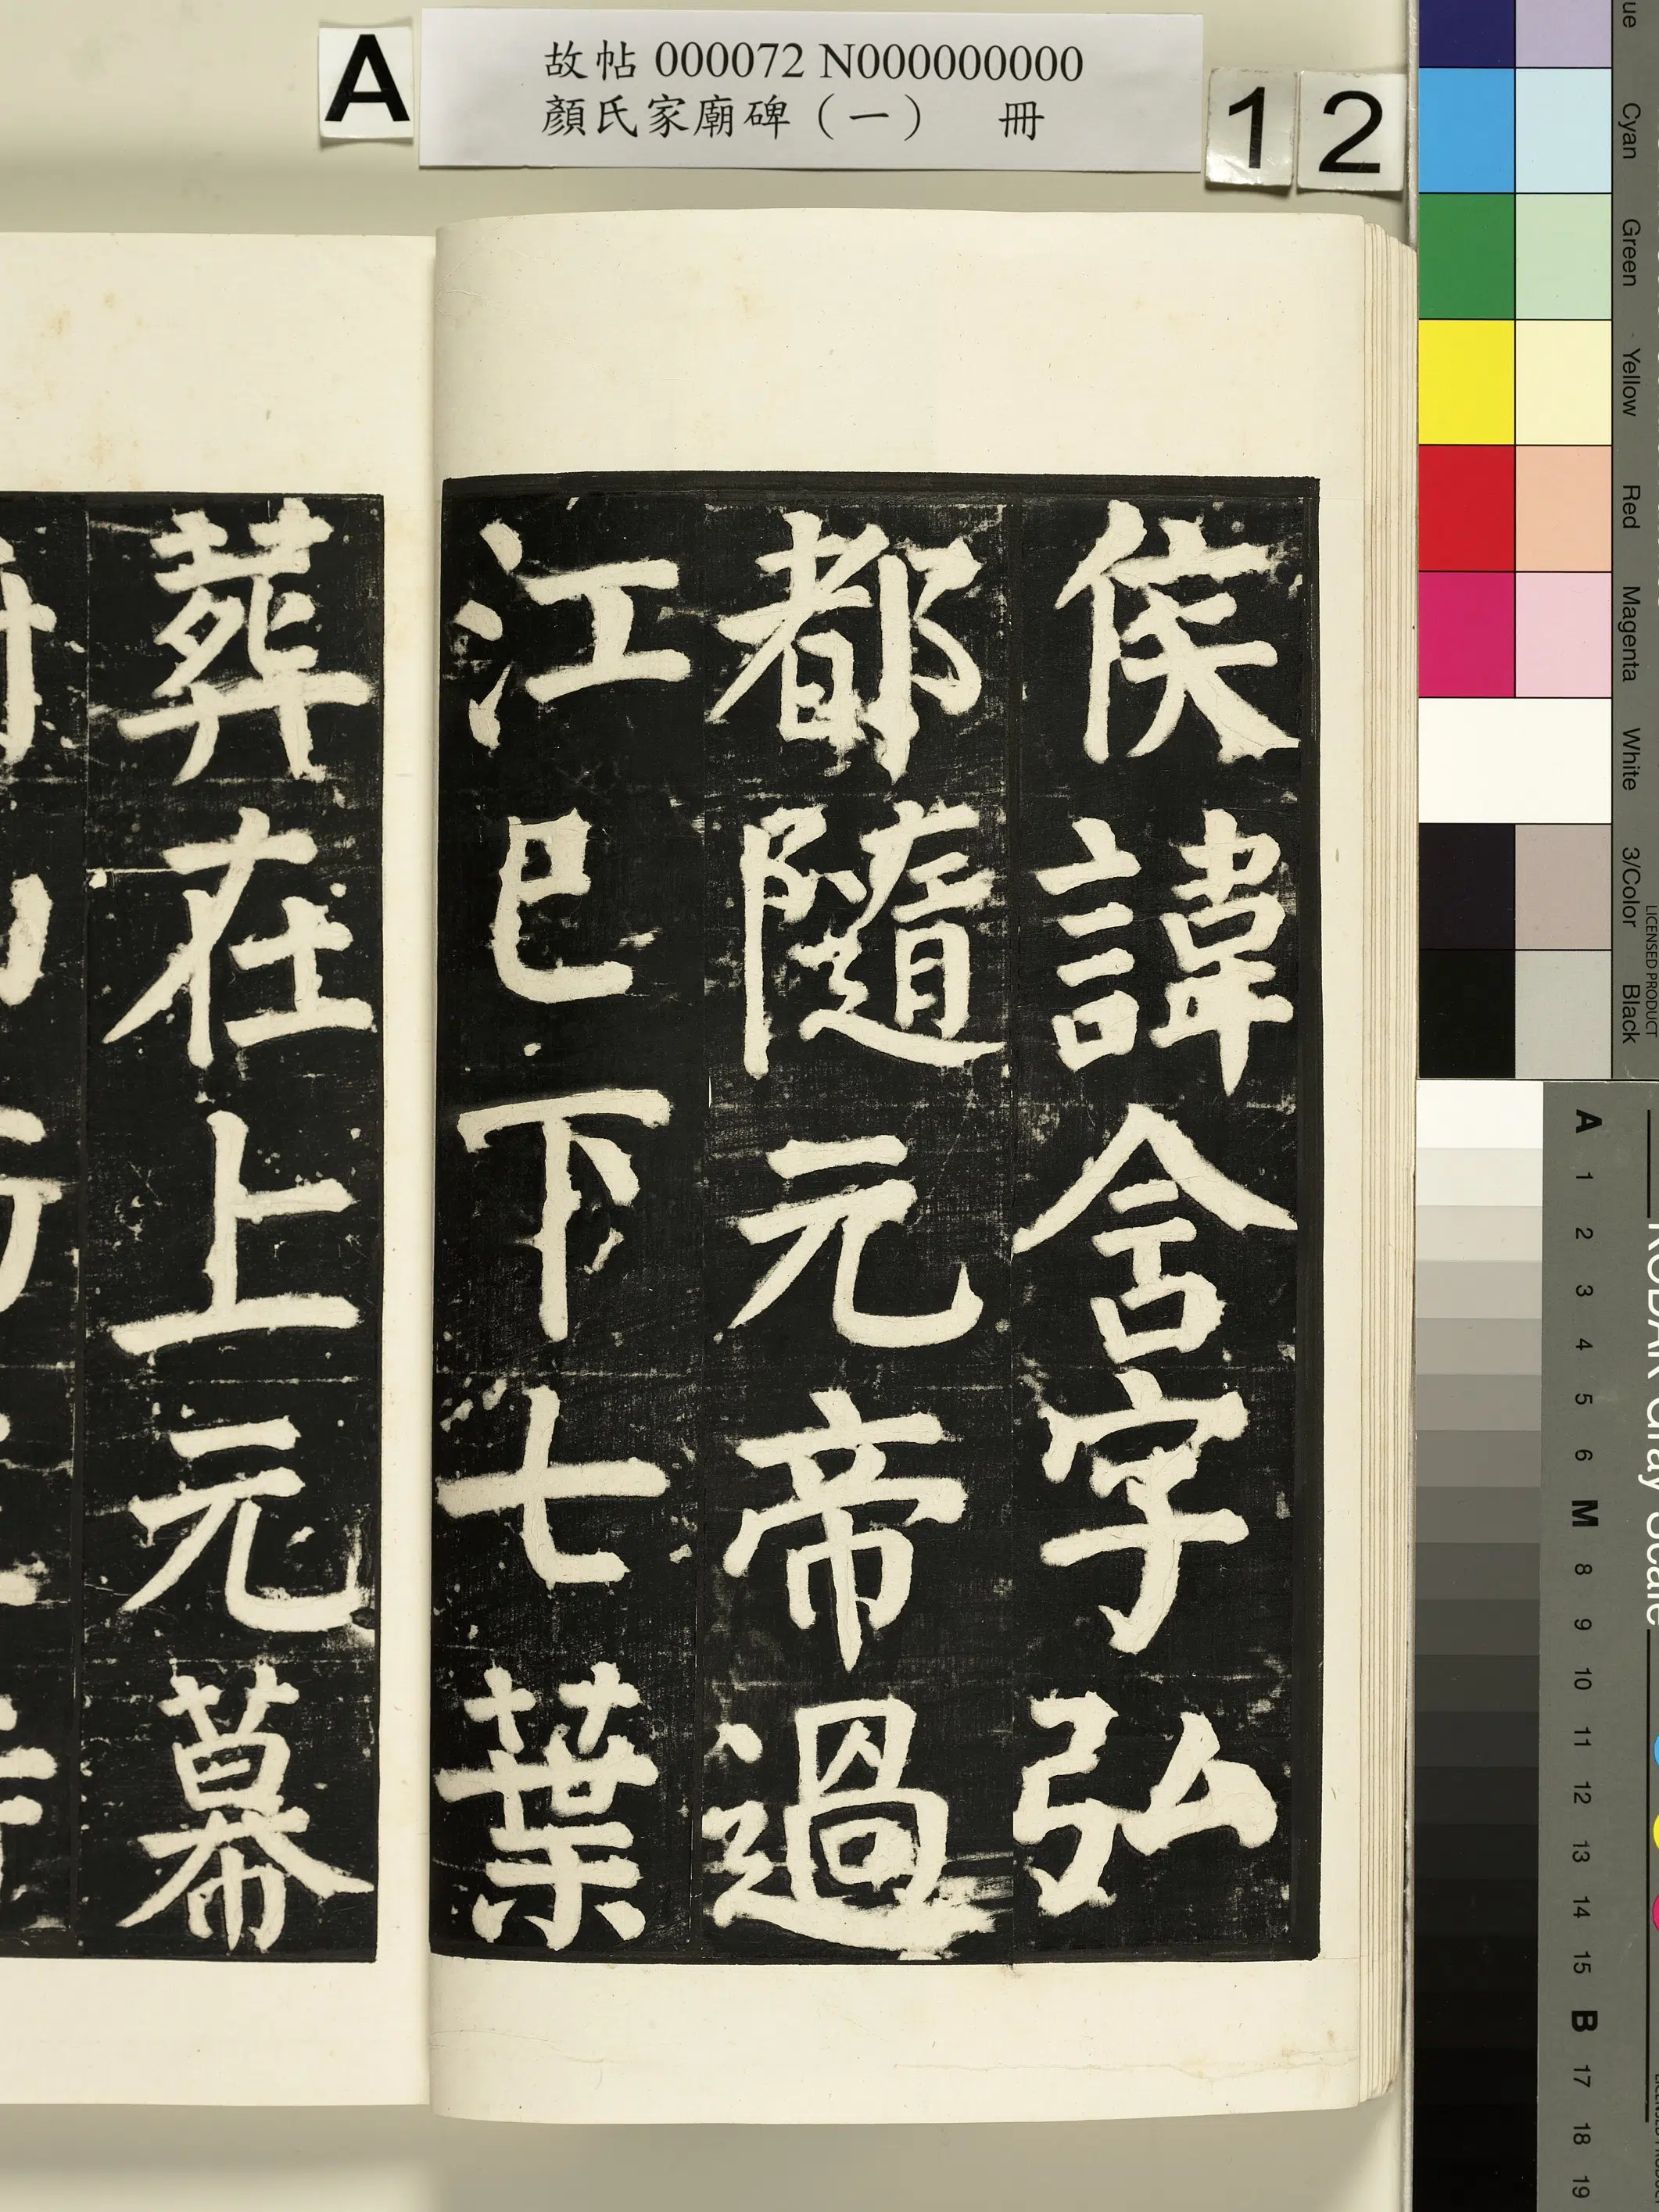 A
故帖 000072 N000000000
顏氏家廟碑（一） 冊
1 2
侯諱含字弘
都隨元帝過
江已下七葉
葬在上元幕
ue
Cyan
Green
Yellow
Red
Magenta
White
3/Color
Black
LICENSED PRODUCT
KODAK Gray Scale
A 1 2 3 4 5 6 M 8 9 10 11 12 13 14 15 B 17 18 19